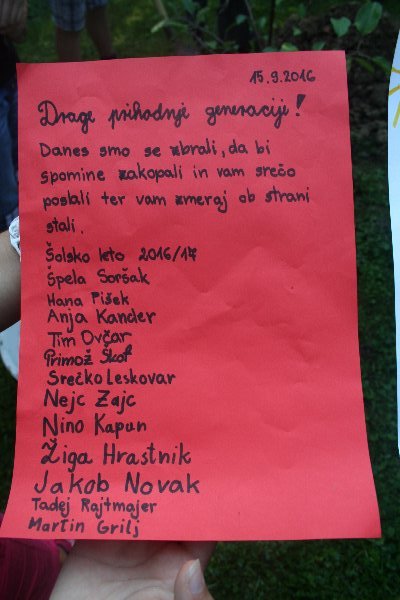 15.9.2016
Drage prihodnje generacije!
Danes smo se zbrali, da bi
spomine zakopali in vam srečo
poslali ter vam zmeraj ob strani
stali.
Šolsko leto 2016/17
Špela Soršak
Hana Pišek
Anja Kander
Tim Ovčar
Primož Škof
Srečko Leskovar
Nejc Zajc
Nino Kapun
Žiga Hrastnik
Jakob Novak
Tadej Rajtmajer
Martin Grilj